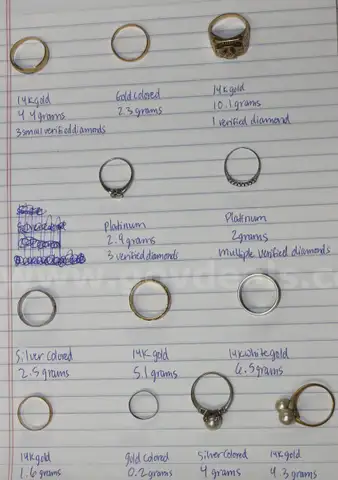 14K gold
4.4 grams
3 small verified diamonds
Gold colored
2.3 grams
14K gold
10.1 grams
1 verified diamond
Platinum
2.4 grams
3 verified diamonds
Platinum
2 grams
Multiple verified diamonds
Silver colored
2.5 grams
14K gold
5.1 grams
14K white gold
6.5 grams
14K gold
1.6 grams
gold colored
0.2 grams
Silver colored
4 grams
14K gold
4.3 grams